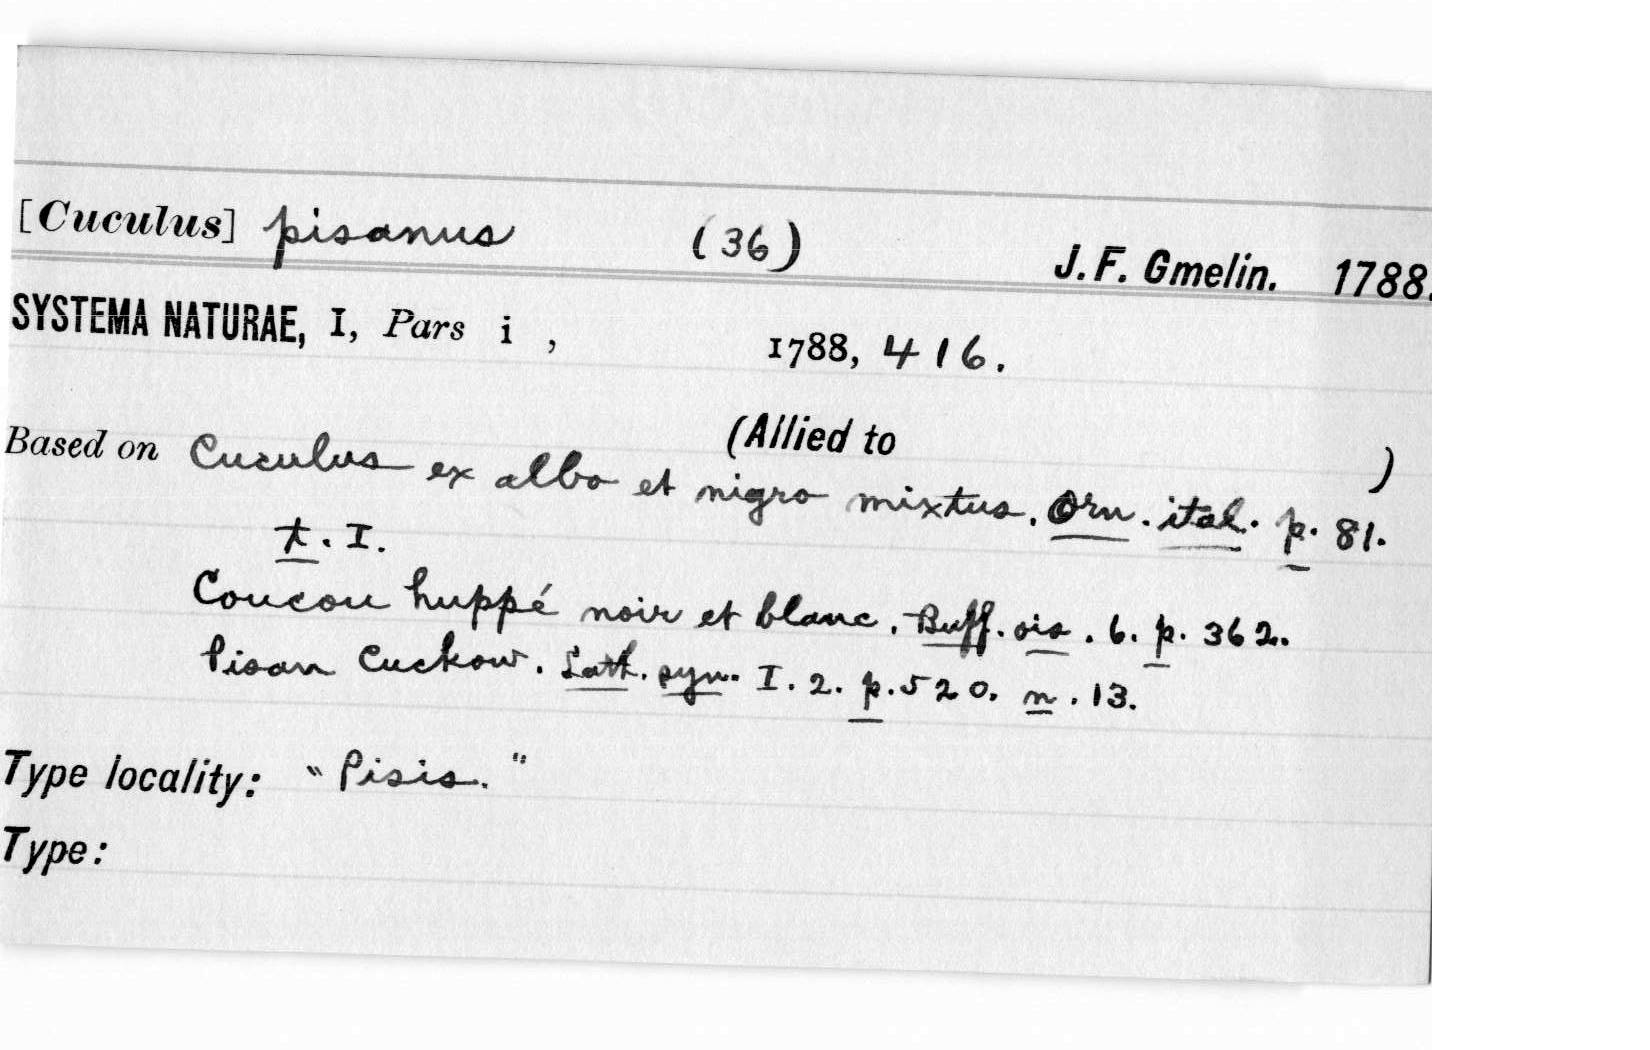 [Cuculus] pisanus (36) J. F. Gmelin. 1788.
SYSTEMA NATURAE, I, Pars i , 1788, 416.
(Allied to )
Based on Cuculus ex albo et nigro mixtus. Orn. ital. p. 81.
t. I.
Coucou huppé noir et blanc. Buff. ois. 6. p. 362.
Pisan Cuckow. Lath. syn. I. 2. p. 520. n. 13.
Type locality: "Pisis."
Type: